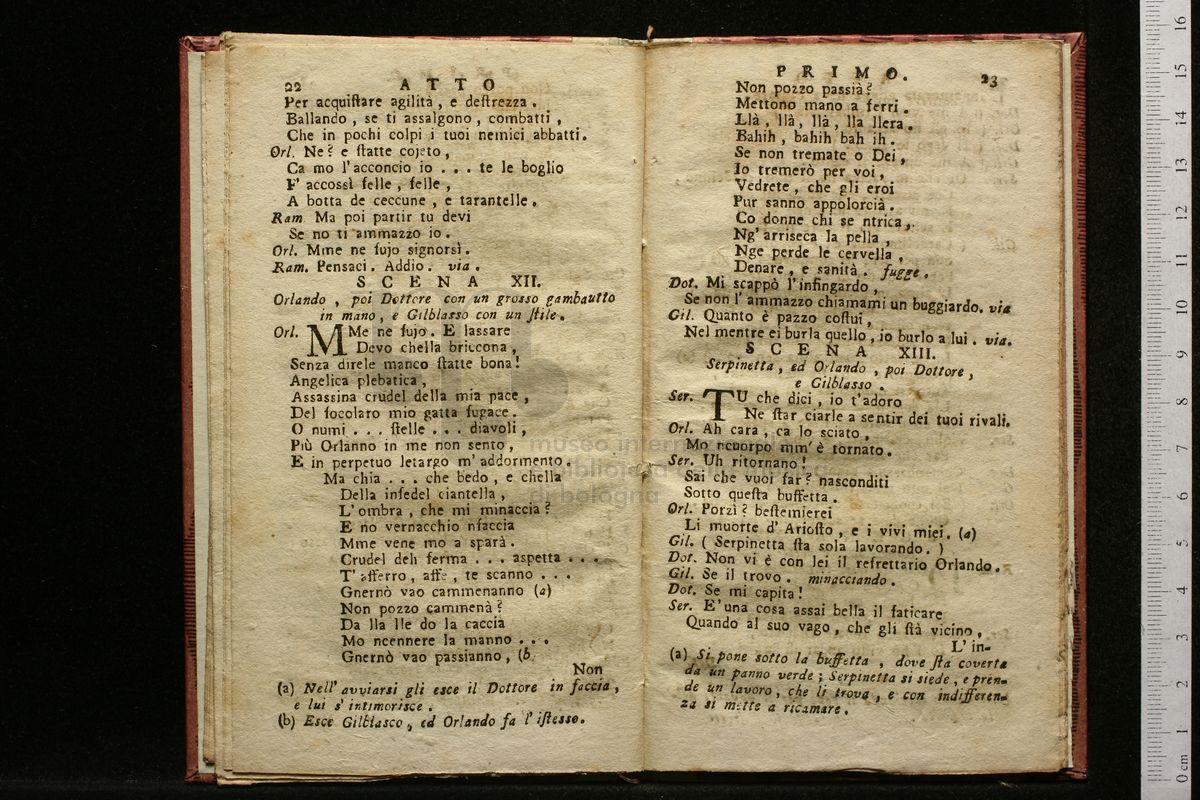 22 ATTO
Per acquiſtare agilità, e deſtrezza.
Ballando, se ti assalgono, combatti,
Che in pochi colpi i tuoi nemici abbatti.
Orl. Ne? e ſtatte cojeto,
Ca mo l'acconcio io . . . te le boglio
F' accossì felle, felle,
A botta de ceccune, e tarantelle.
Ram. Ma poi partir tu devi
Se no ti ammazzo io.
Orl. Mme ne fujo signorsì.
Ram. Pensaci. Addio. via.
SCENA XII.
Orlando, poi Dottore con un grosso gambautto
in mano, e Gilblasso con un ſtile.
Orl. MMe ne fujo. E lassare
Devo chella briccona,
Senza direle manco ſtatte bona!
Angelica plebatica,
Assassina crudel della mia pace,
Del focolaro mio gatta fugace.
O numi . . . ſtelle . . . diavoli,
Più Orlanno in me non sento,
E in perpetuo letargo m' addormento.
Ma chia . . . che bedo, e chella
Della infedel ciantella,
L' ombra, che mi minaccia?
E no vernacchio nfaccia
Mme vene mo a sparà.
Crudel deh ferma . . . aspetta . . . .
T' afferro, affe, te scanno . . .
Gnernò vao cammenanno (a)
Non pozzo cammenà?
Da lla lle do la caccia
Mo ncennere la manno . . .
Gnernò vao passianno, (b
Non
(a) Nell' avviarsi gli esce il Dottore in faccia,
e lui s' intimorisce.
(b) Esce Gilblasco, ed Orlando fa l' iſtesso.
PRIMO. 23
Non pozzo passià?
Mettono mano a ferri.
Llà, llà, llà, lla llera.
Bahih, bahih bah ih.
Se non tremate o Dei,
Io tremerò per voi,
Vedrete, che gli eroi
Pur sanno appolorcià.
Co donne chi se ntrica,
Ng' arriseca la pella,
Nge perde le cervella,
Denare, e sanità. fugge.
Dot. Mi scappò l' infingardo,
Se non l' ammazzo chiamami un buggiardo. via
Gil. Quanto è pazzo coſtui,
Nel mentre ei burla quello, io burlo a lui. via.
SCENA XIII.
Serpinetta, ed Orlando, poi Dottore,
e Gilblasso.
Ser. TU che dici, io t'adoro
Ne ſtar ciarle a sentir dei tuoi rivali.
Orl. Ah cara, ca lo sciato,
Mo ncuorpo mm' è tornato.
Ser. Uh ritornano!
Sai che vuoi far? nasconditi
Sotto queſta buffetta.
Orl. Porzì? beſtemierei
Li muorte d' Arioſto, e i vivi miei. (a)
Gil. (Serpinetta ſta sola lavorando.)
Dot. Non vi è con lei il refrettario Orlando.
Gil. Se il trovo. minacciando.
Dot. Se mi capita!
Ser. E' una cosa assai bella il faticare
Quando al suo vago, che gli ſtà vicino,
L' in-
(a) Si pone sotto la buffetta, dove ſta coverta
da un panno verde; Serpinetta si siede, e pren-
de un lavoro, che li trova, e con indifferen-
za si mette a ricamare.
museo intern
biblioteca
di bologna
0 cm 1 2 3 4 5 6 7 8 9 10 11 12 13 14 15 16